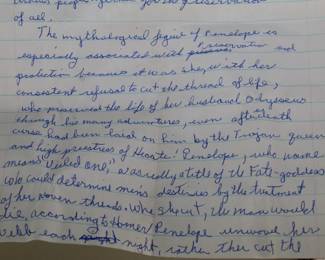 of all.
The mythological figure of Penelope is
preservation
especially associated with and
protection because it was she, with her
consistent refusal to cut the thread of life,
who preserved the life of her husband Odysseus
through his many adventures, even after death
curse had been laid on him by the Trojan queen
and high priestess of Hecate. Penelope, who name
means Veiled One, was really a title of the Fate-goddess
who could determine men's destinies by the treatment
of her woven threads. Whe she cut, the man would
die, according to Homer Penelope unwove her
webb each night, rather then cut the